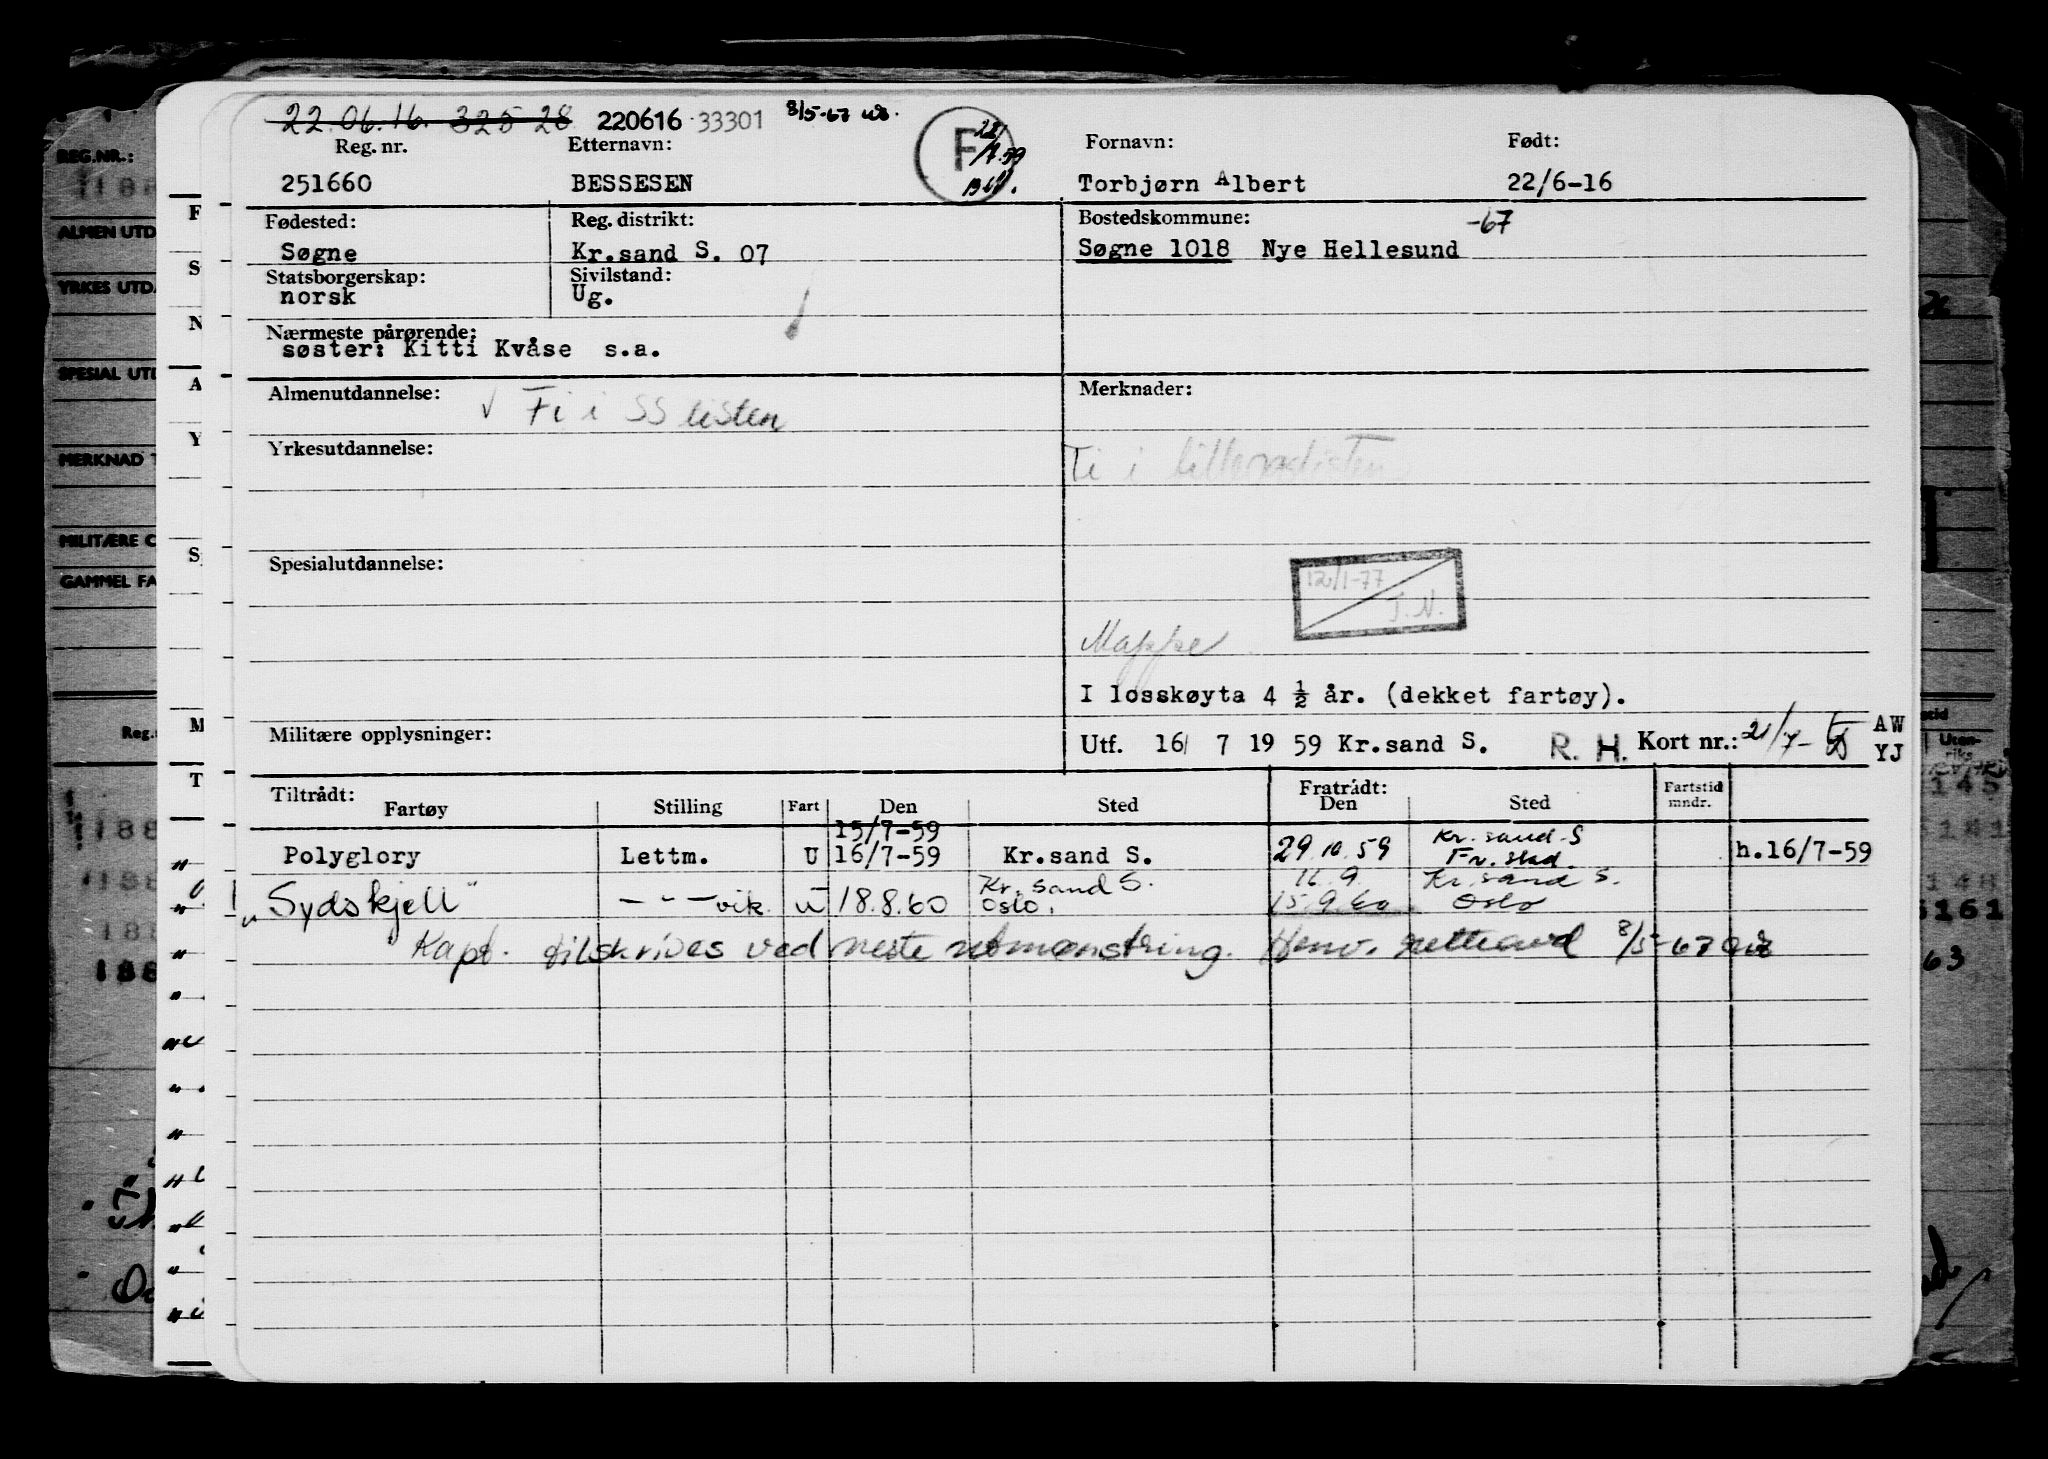 22.06.16. 325 28 220616 33301 8/5-67
Reg. nr. Etternavn: F Fornavn: Født:
251660 BESSESEN Torbjørn Albert 22/6-16
Fødested: Reg. distrikt: Bostedskommune: -67
Søgne Kr.sand S. 07 Søgne 1018 Nye Hellesund
Statsborgerskap: Sivilstand:
norsk Ug.
Nærmeste pårørende:
søster: Kitti Kvåse s.a.
Almenutdannelse: Fi i SS listen Merknader:
Yrkesutdannelse: Ti i
Spesialutdannelse:
12/1-77
J.N.
Mappe
I losskøyta 4 ½ år. (dekket fartøy).
Militære opplysninger: Utf. 16/ 7 19 59 Kr.sand S. R. H. Kort nr.: 21/7- AW
YJ
Tiltrådt: Fratrådt: Fartstid
Fartøy Stilling Fart Den Sted Den Sted mndr.
15/7-59 Kr.sand.S
Polyglory Lettm. U 16/7-59 Kr.sand S. 29.10.59 Fr.stad. h.16/7-59
Kr.sand S. 16.9. Kr.sand S.
"Sydskjell" — " — vik. U 18.8.60 Oslo. 15.9.60 Oslo
Kapt. tilskrives ved neste utmønstring. Henv. 8/5-67
REG.NR.:
ALMEN UTD
YRKES UTD.
SPESIAL UTD
MERKNAD
MILITÆRE
GAMMEL FA
F
S
N
A
Y
S
M
T